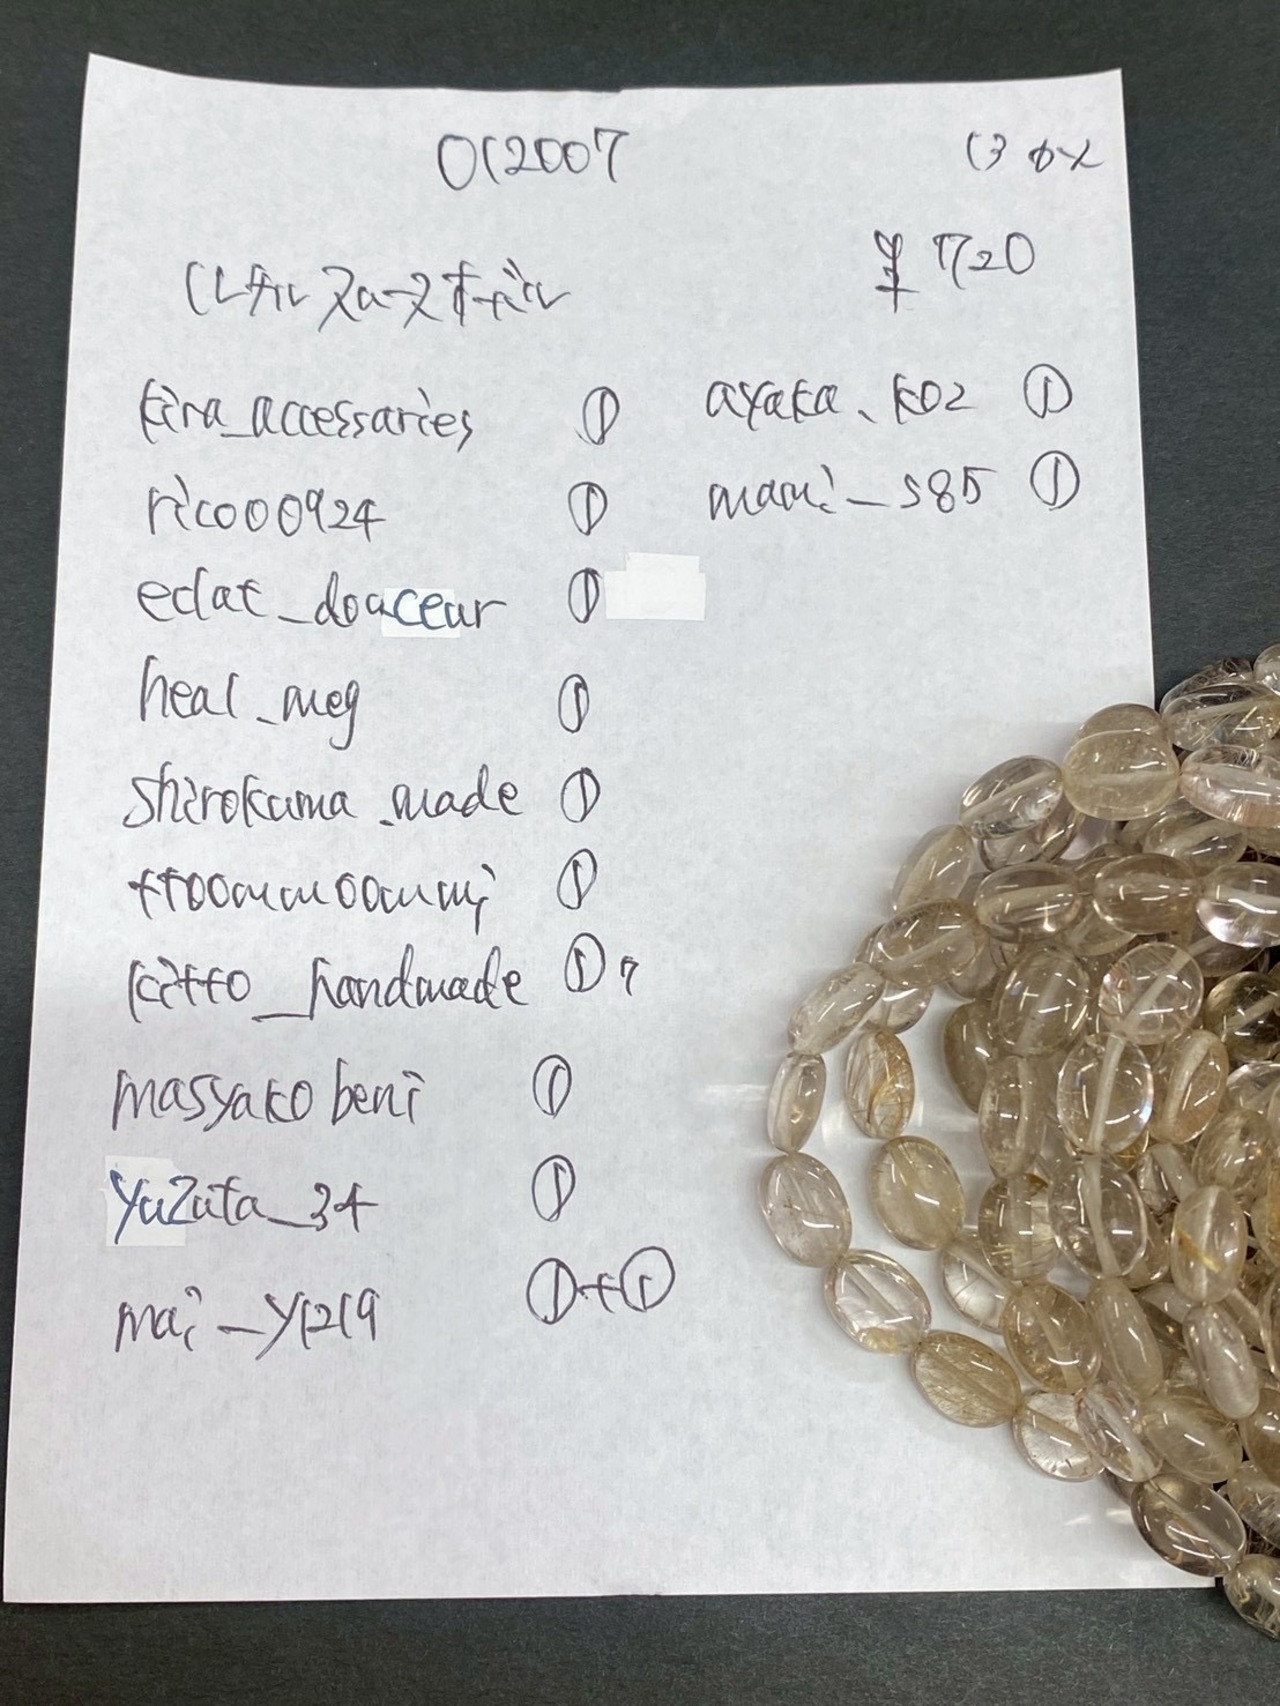 012007
13
ルチルスロースオーバル
¥1720
kira_accessaries ①
rico000924 ①
eclat_douceur ①
heal_meg ①
shirokuma_made ①
tt00mm00mmj ①
kitto_handmade ①?
masyakobeni ①
yuzuta_34 ①
mai_y1219 ①+①
ayaka.k02 ①
mami_s85 ①